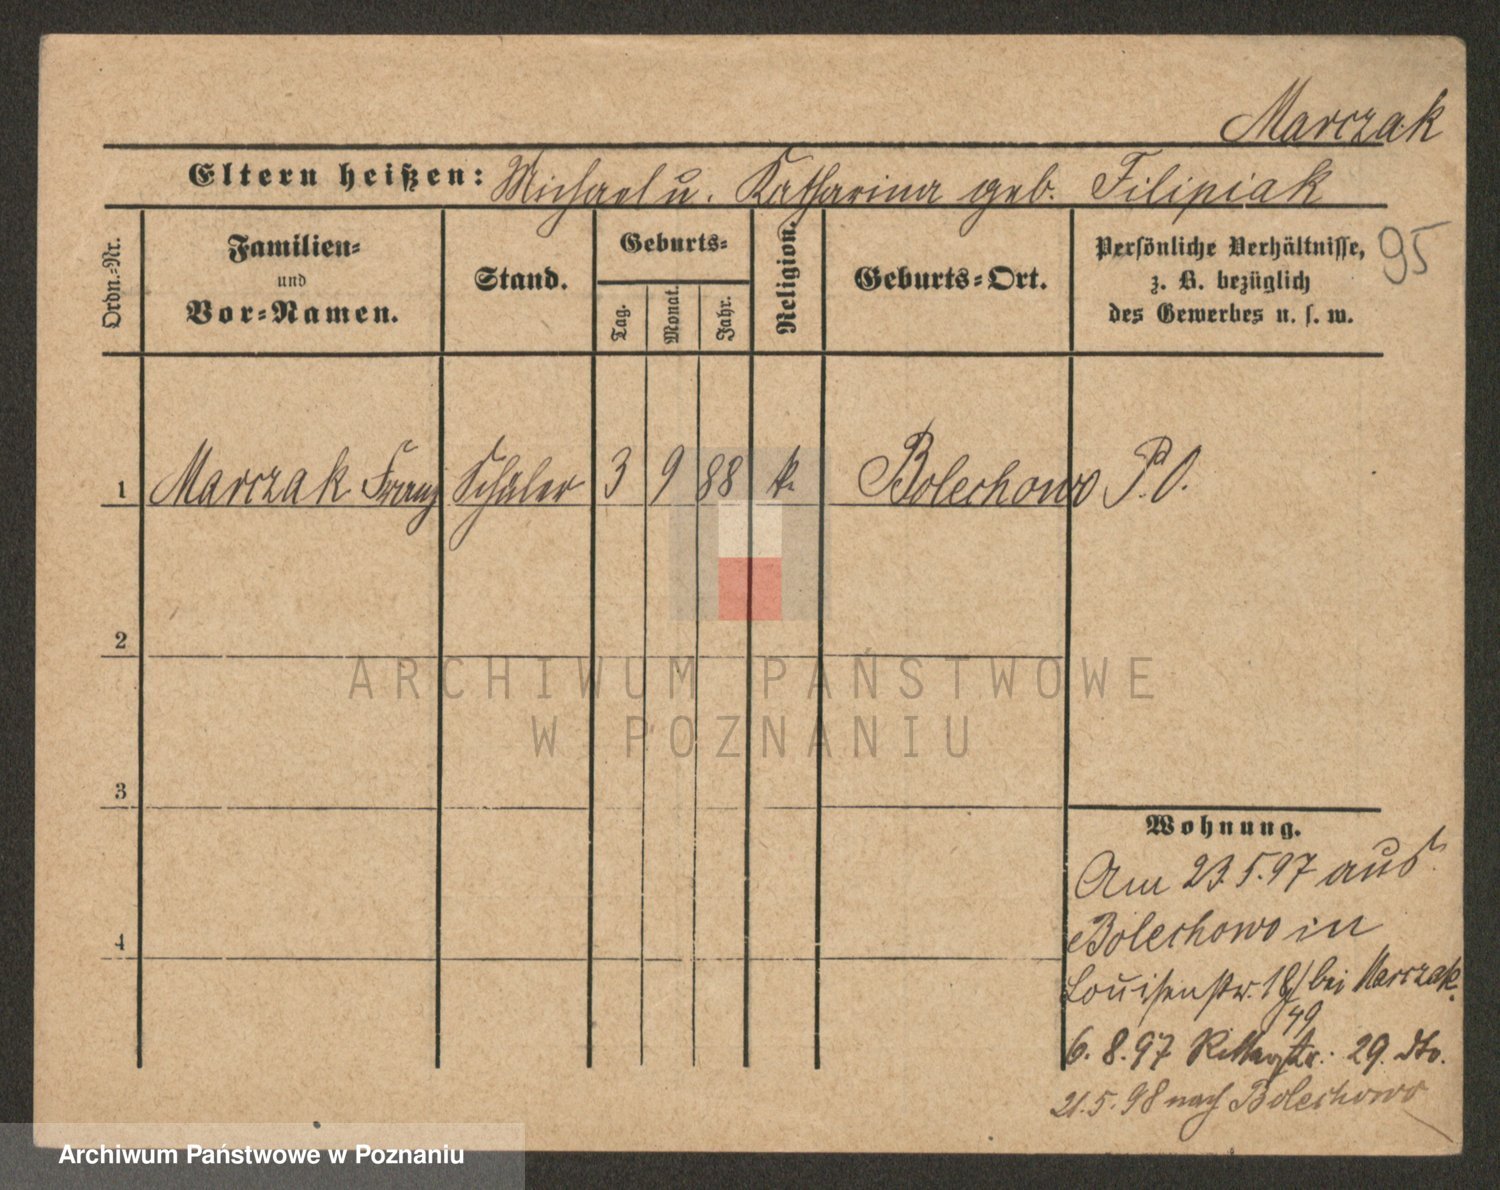 Marczak
Eltern heißen: Michael u. Katharina geb. Filipiak
95
Ordn.=Nr.
Familien=
und
Vor=Namen.
Stand.
Geburts=
Tag.
Monat.
Jahr.
Religion.
Geburts=Ort.
Persönliche Verhältnisse,
z. B. bezüglich
des Gewerbes u. s. w.
1 Marczak Franz Schüler 3 9 88 k. Bolechowo P. O.
2
3
4
Wohnung.
Am 23.5.97 aus
Bolechowo in
Louisenstr. 18 bei Marczak.
49
6. 8. 97 Ritterstr. 29. dto.
21.5.98 nach Bolechowo
ARCHIWUM PAŃSTWOWE
W POZNANIU
Archiwum Państwowe w Poznaniu